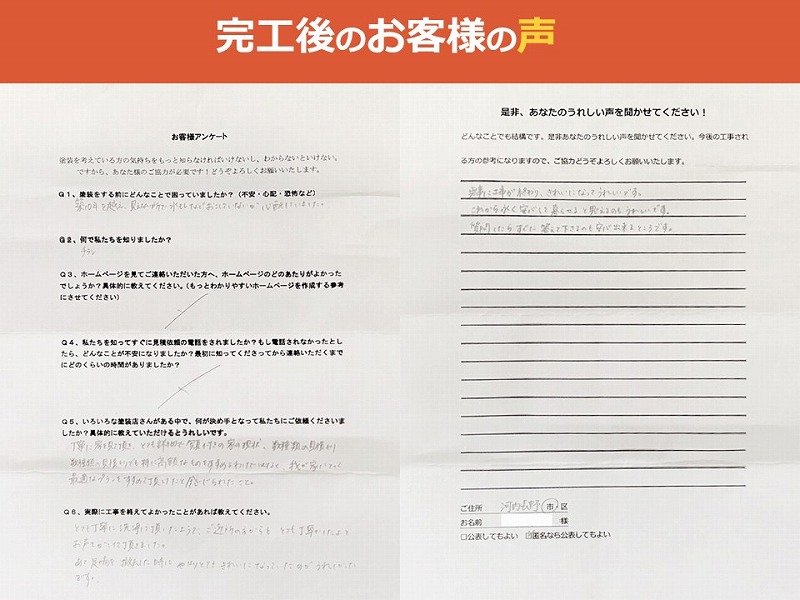 完工後のお客様の声
お客様アンケート
塗装を考えている方の気持ちをもっと知らなければいけないし、わからないといけない。
ですから、あなた様のご協力が必要です！どうぞよろしくお願いいたします。
Q1、塗装をする前にどんなことで困っていましたか？（不安・心配・恐怖など）
築10年を越え、見えない所に水もれなどおこしていないか心配していました。
Q2、何で私たちを知りましたか？
チラシ
Q3、ホームページを見てご連絡いただいた方へ、ホームページのどのあたりがよかった
でしょうか？具体的に教えてください。（もっとわかりやすいホームページを作成する参考
にさせてください）
Q4、私たちを知ってすぐに見積依頼の電話をされましたか？もし電話されなかったとし
たら、どんなことが不安になりましたか？最初に知ってくださってから連絡いただくまで
にどのくらいの時間がありましたか？
Q5、いろいろな塗装店さんがある中で、何が決め手となって私たちにご依頼くださいま
したか？具体的に教えていただけるとうれしいです。
丁寧に家を見て頂き、とても詳細で写真付きの家の現状、数種類の見積り
数種類の見積りでも特に高額なものをすすめるわけではなく、我が家にとって
最適なプランをすすめて頂けたと感じられたこと。
Q6、実際に工事を終えてよかったことがあれば教えてください。
とても丁寧に洗浄して頂いたようで、ご近所の方からも とても丁寧
お声をかけて頂きました。
あと足場を撤去した時に やはりとても きれいになっていたのがうれしかった
です。
是非、あなたのうれしい声を聞かせてください！
どんなことでも結構です。是非あなたのうれしい声を聞かせてください。今後の工事され
る方の参考になりますので、ご協力どうぞよろしくお願いいたします。
無事に工事が終わり、きれいになってうれしいです。
これから永く安心して暮らせると思えるのもうれしいです。
質問したらすぐに答えて下さるのも安心出来るところです。
ご住所 河内長野 市・区
お名前 様
□公表してもよい ☑匿名なら公表してもよい